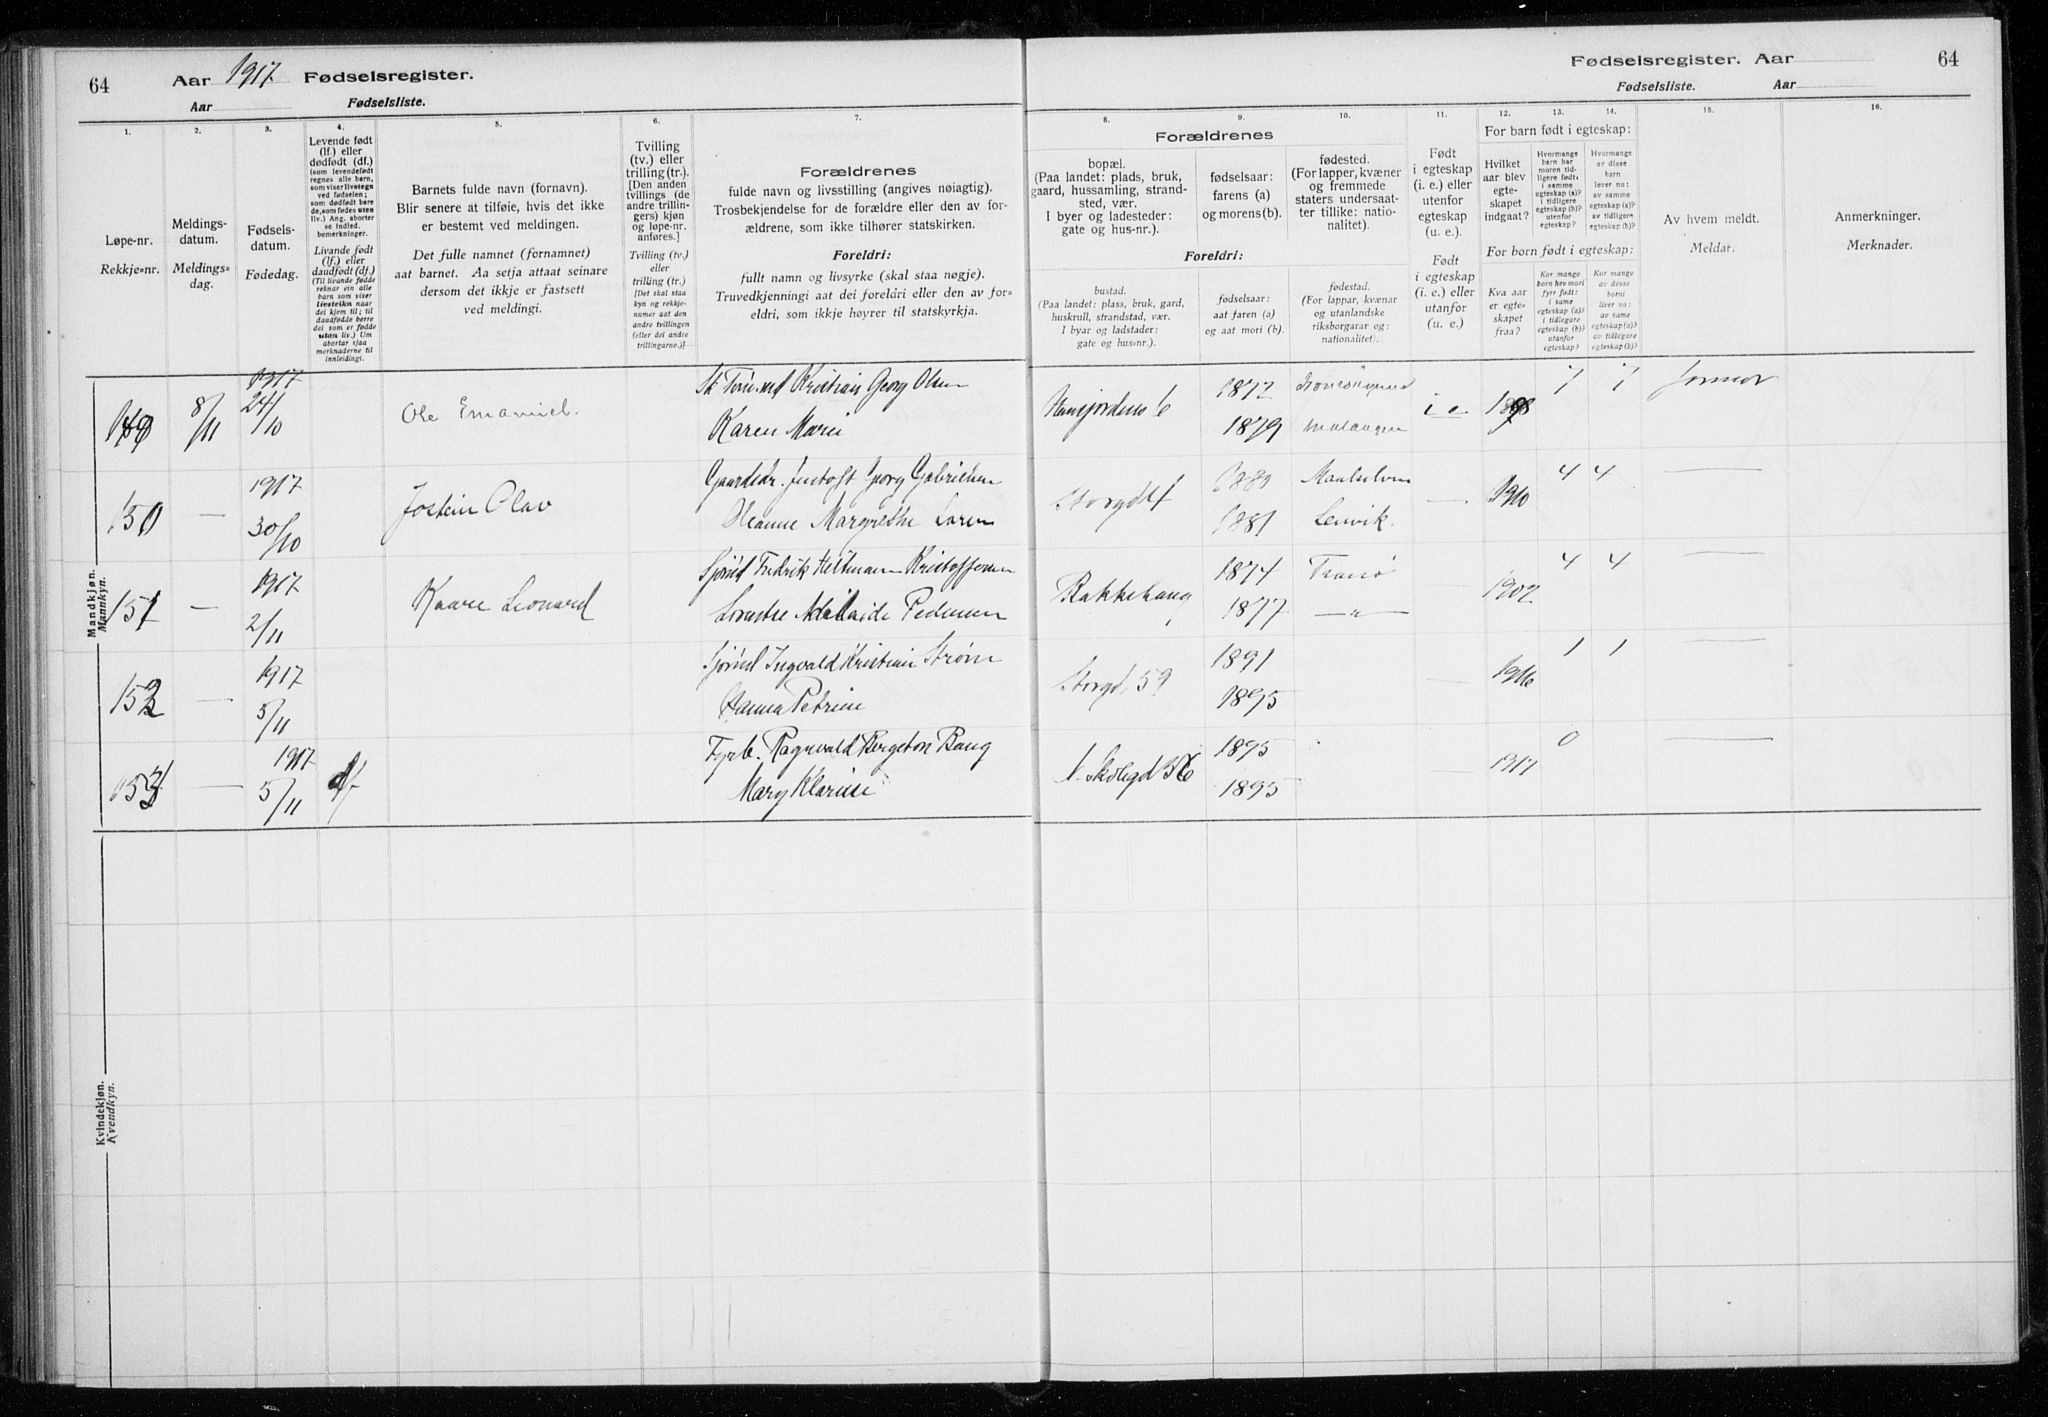 64 Aar 1917 Fødselsregister.
Aar Fødselsliste.
Fødselsregister. Aar 64
Fødselsliste. Aar
1. 2. 3. 4. 5. 6. 7.
Løpe-nr.
Rekkje-nr.
Meldings-
datum.
Meldings-
dag.
Fødsels-
datum.
Fødedag.
Levende født
(lf.) eller
dødfødt (df.)
(som levendefødt
regnes alle barn,
som viser livstegn
ved fødselen;
som dødfødt bare
de, som fødes uten
liv.) Ang. aborter
se Indled.
bemerkninger.
Livande født
(lf.) eller
daudfødt (df.)
(Til livande fødde
reknar ein alle
barn som viser
livsteikn naar
dei kjem til; til
daudfødde berre
dei som er fødde
utan liv.) Um
abortar sjaa
merknaderne til
innleidingi.
Barnets fulde navn (fornavn).
Blir senere at tilføie, hvis det ikke
er bestemt ved meldingen.
Det fulle namnet (fornamnet)
aat barnet. Aa setja attaat seinare
dersom det ikkje er fastsett
ved meldingi.
Tvilling
(tv.) eller
trilling (tr.).
[Den anden
tvillings (de
andre trillin-
gers) kjøn
og løpe-nr.
anføres.]
Tvilling (tv.)
eller
trilling (tr.)
[Det skal staa
kyn og rekkje-
numer aat den
andre tvillingen
(eller dei andre
trillingarne.)]
Forældrenes
fulde navn og livsstilling (angives nøiagtig).
Trosbekjendelse for de forældre eller den av for-
ældrene, som ikke tilhører statskirken.
Foreldri:
fullt namn og livsyrke (skal staa nøgje).
Truvedkjenningi aat dei foreldri eller den av for-
eldri, som ikkje høyrer til statskyrkja.
8. 9. 10. 11. 12. 13. 14. 15. 16.
Forældrenes
bopæl.
(Paa landet: plads, bruk,
gaard, hussamling, strand-
sted, vær.
I byer og ladesteder:
gate og hus-nr.).
fødselsaar:
farens (a)
og morens (b).
fødested.
(For lapper, kvæner
og fremmede
staters undersaat-
ter tillike: natio-
nalitet).
Foreldri:
bustad.
(Paa landet: plass, bruk, gard,
huskrull, strandstad, vær.
I byar og ladstader:
gate og hus-nr.).
fødselsaar:
aat faren (a)
og aat mori (b).
fødestad.
(For lappar, kvænar
og utanlandske
riksborgarar og:
nationalitet).
Født
i egteskap
(i. e.) eller
utenfor
egteskap
(u. e.).
Født
i egteskap
(i. e.) eller
utanfor
(u. e.)
For barn født i egteskap:
Hvilket
aar blev
egte-
skapet
indgaat?
Hvormange
barn har
moren tid-
ligere født:
i samme
egteskap (a)?
i tidligere
egteskap (b)?
utenfor
egteskap?
Hvormange
av disse
barn
lever nu:
av samme
egteskap (a)?
av tidligere
egteskap (b)?
For born født i egteskap:
Kva aar
er egte-
skapet
fraa?
Kor mange
born hev mori
fyrr født:
i same
egteskap (a)?
i tidlegare
egteskap (b)?
utanfor
egteskap?
Kor mange
av desse
borni
liver no:
av same
egteskap (a)?
av tidlegare
egteskap (b)?
Av hvem meldt.
Meldar.
Anmerkninger.
Merknader.
Mandkjøn.
Mannkyn.
149 8/11 1917 24/10 Ole Emanuel. Kristian Georg Olsen
Karen Marie
1872
1879 Malangen i e 7 7 Jormor
150 — 1917 30/10 Jostein Olav Gaardbr. Jentoft Georg Gabrielsen
Oleanne Margrethe Larsen
Storgd 1889 Maalselven
1881 Lenvik. — 1910 4 4 —
151 — 1917 2/11 Kaare Leonard Sjømd Fredrik Hiltmann Kristoffersen
Adelaide Pedersen
Bakkehaug 1874 Tranø
1877 —"— — 1902 4 4 —
152 — 1917 5/11 Sjømd Ingvald Kristian Strøm
Hanna Petrine
Storgd. 59 1891
1895 — 1916 1 1 —
153 — 1917 5/11 df Fyrb. Ragnvald Bergeton Bang
Mary Klarise
N. Skolegd 36 1895
1895 — 1917 0 —
Kvindekjøn.
Kvendkyn.